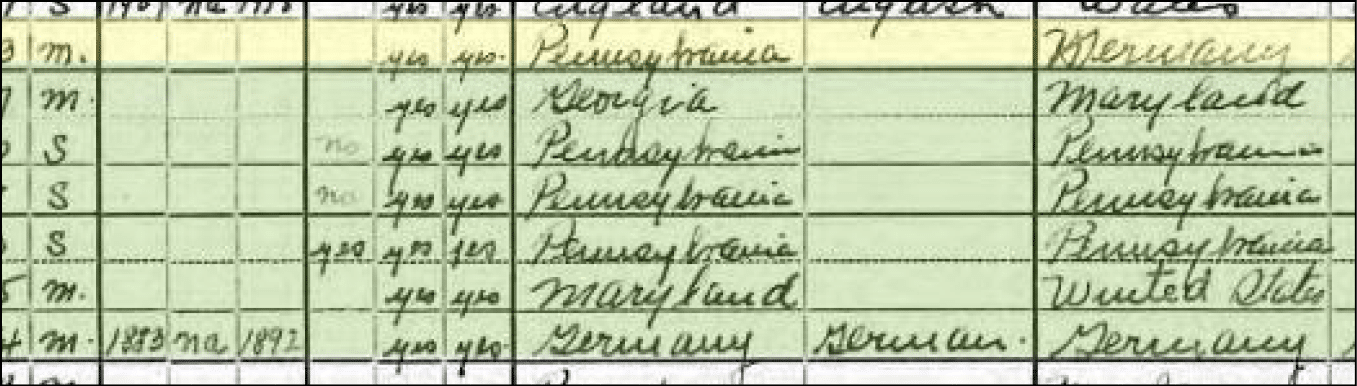 S 1909 na yes yes England English Wales
3 m. yes yes. Pennsylvania Germany
7 m. yes yes Georgia Maryland
S no yes yes Pennsylvania Pennsylvania
S no yes yes Pennsylvania Pennsylvania
S yes yes yes Pennsylvania Pennsylvania
5 m. yes yes Maryland United States
4 m. 1883 na 1892 yes yes. Germany German. Germany